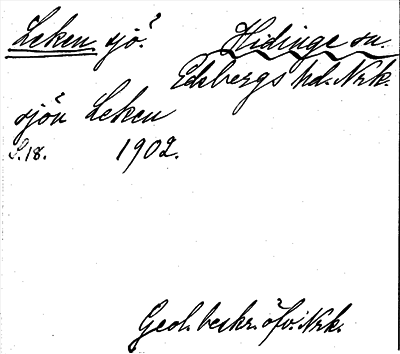 Leken sjö. Hidinge sn.
Edsbergs hd. Nrk.
sjön Leken
S.18. 1902.
Geol. beskr. öfv. Nrk.